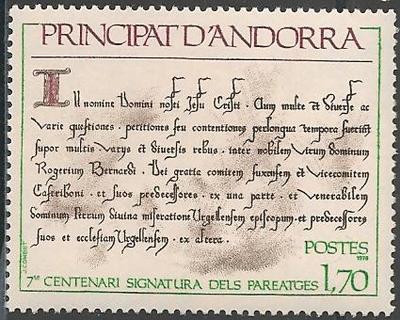 PRINCIPAT D'ANDORRA
In nomine Domini nostri Jesu Cristi. Cum multe et diverse ac
varie questiones. petitiones seu contentiones perlongua tempora fuerint
super multis varys et diversis rebus. inter nobilem virum dominum
Rogerium Bernardi. Dei gratia comitem fuxensem et vicecomitem
Castriboni. et suos predecessores. ex una parte. et venerabilem
dominum Petrum divina miseratione Urgellensem episcopum et predecessores
suos et ecclesiam Urgellensem. ex altera.
POSTES
1978
7è CENTENARI SIGNATURA DELS PAREATGES
1,70
J.COMBET